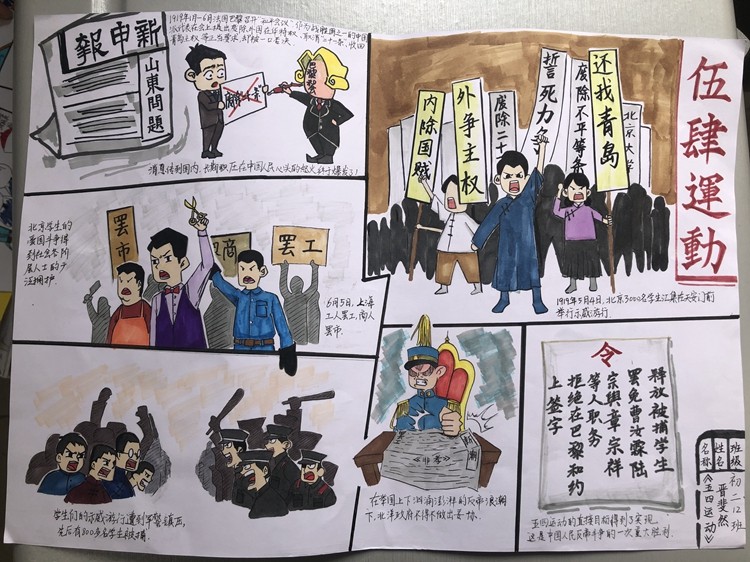 新申報
山東問題
1919年1月-6月法国巴黎召开"和平会议",作为战胜国之一的中国
派代表在会上提出废除外国在华特权,取消"二十一条",收回
青岛主权等正当要求,却被一口否决。
消息传到国内,长期积压在中国人民心头的怒火终于爆发了!
伍肆運動
还我青岛
北京大学
廢除不平等条
誓死力争
廢除二十
外争主权
内除国贼
1919年5月4日,北京3000名学生汇集在天安门前
举行示威游行。
北京学生的
爱国斗争得
到社会各阶
层人士的广
泛拥护
罢市
商
罢工
6月5日,上海
工人罢工,商人
罢市。
学生们的示威游行遭到军警镇压,
先后有800名学生被捕。
在举国上下汹涌澎湃的反帝浪潮
下,北洋政府不得不做出妥协。
令
釋放被捕学生
罢免曹汝霖陆
宗與章宗祥
等人职务
拒绝在巴黎和约
上签字
五四运动的直接目标得到了实现,
这是中国人民反帝斗争的一次重大胜利.
班级 初二12班
姓名 晋斐然
名称《五四运动》